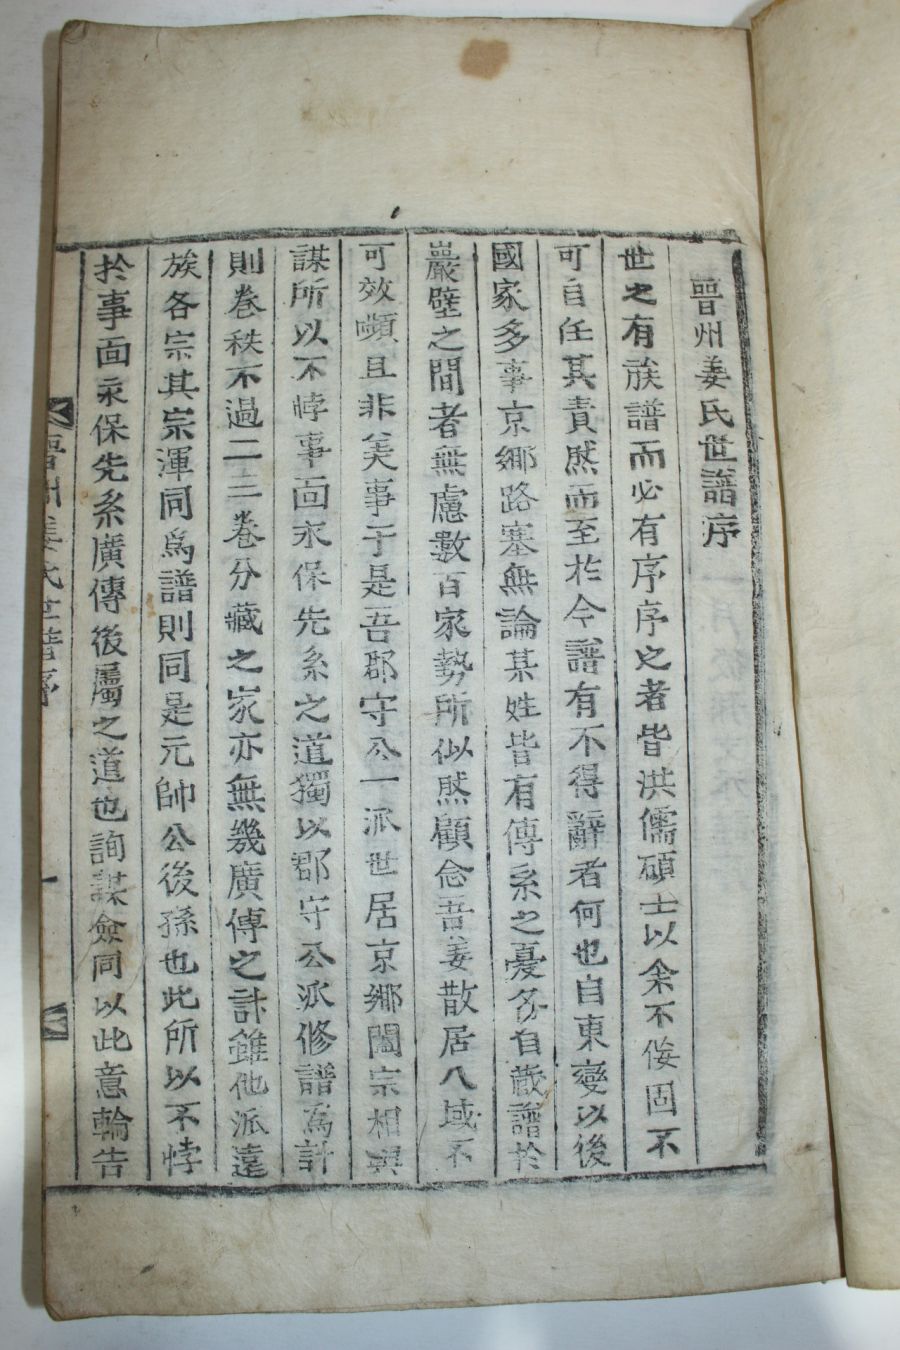 晉州姜氏世譜序
世之有族譜而必有序序之者皆洪儒碩士以余不侫固不
可自任其責然而至於今譜有不得辭者何也自東變以後
國家多事京鄉路塞無論某姓皆有傳系之憂各自蕆譜於
巖壁之間者無慮數百家勢所似然顧念吾姜散居八域不
可效嚬且非美事于是吾郡守公一派世居京鄉闔宗相與
謀所以不悖事面永保先系之道獨以郡守公派修譜爲計
則卷秩不過二三卷分藏之家亦無幾廣傳之計雖他派遠
族各宗其宗渾同爲譜則同是元帥公後孫也此所以不悖
於事面永保先系廣傳後屬之道也詢謀僉同以此意輪告
晉州姜氏世譜序
一